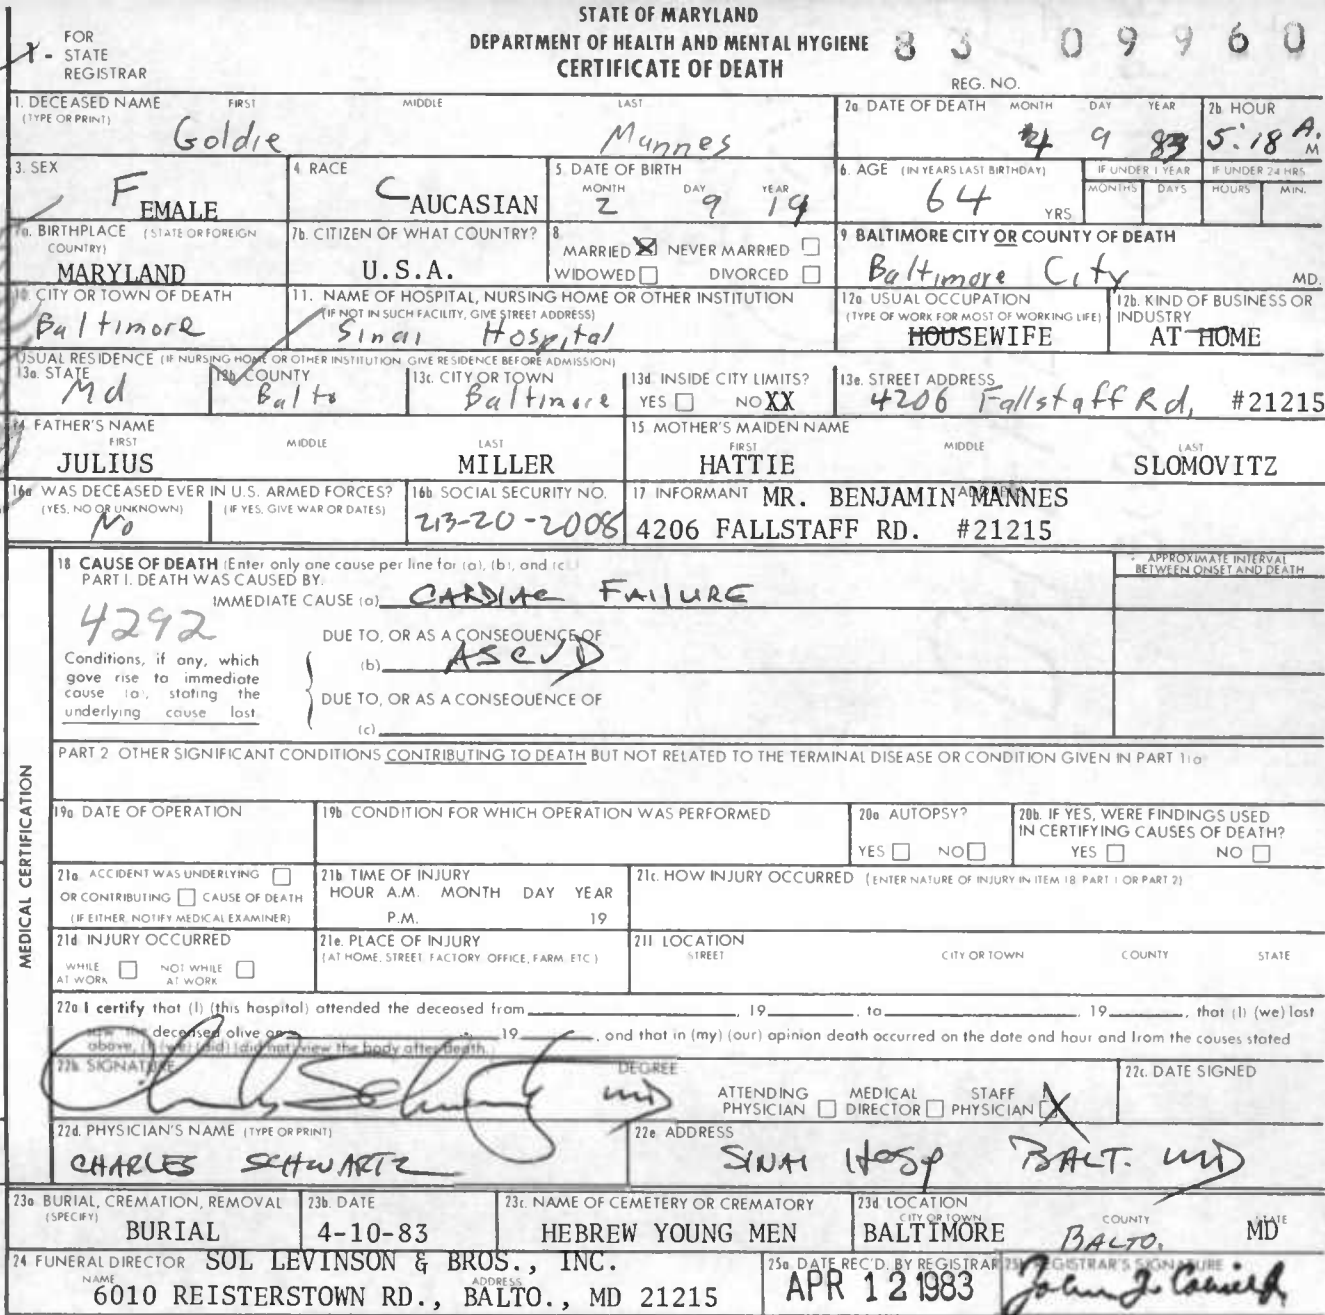 STATE OF MARYLAND
DEPARTMENT OF HEALTH AND MENTAL HYGIENE
CERTIFICATE OF DEATH
83 09960
REG. NO.
FOR
STATE
REGISTRAR
1. DECEASED NAME FIRST MIDDLE LAST
(TYPE OR PRINT)
Goldie Mannes
2a DATE OF DEATH MONTH DAY YEAR
4 9 83
2b. HOUR
5:18 A.
M
3. SEX
FEMALE
4. RACE
CAUCASIAN
5. DATE OF BIRTH
MONTH DAY YEAR
2 9 19
6. AGE (IN YEARS LAST BIRTHDAY)
64 YRS.
IF UNDER 1 YEAR
MONTHS DAYS
IF UNDER 24 HRS
HOURS MIN.
7a. BIRTHPLACE (STATE OR FOREIGN
COUNTRY)
MARYLAND
7b. CITIZEN OF WHAT COUNTRY?
U.S.A.
8.
MARRIED ☒ NEVER MARRIED ☐
WIDOWED ☐ DIVORCED ☐
9 BALTIMORE CITY OR COUNTY OF DEATH
Baltimore City MD.
10. CITY OR TOWN OF DEATH
Baltimore
11. NAME OF HOSPITAL, NURSING HOME OR OTHER INSTITUTION
(IF NOT IN SUCH FACILITY, GIVE STREET ADDRESS)
Sinai Hospital
12a. USUAL OCCUPATION
(TYPE OF WORK FOR MOST OF WORKING LIFE)
HOUSEWIFE
12b. KIND OF BUSINESS OR
INDUSTRY
AT HOME
USUAL RESIDENCE (IF NURSING HOME OR OTHER INSTITUTION GIVE RESIDENCE BEFORE ADMISSION)
13a. STATE
Md
13b. COUNTY
Balto
13c. CITY OR TOWN
Baltimore
13d INSIDE CITY LIMITS?
YES ☐ NO XX
13e. STREET ADDRESS
4206 Fallstaff Rd, #21215
14 FATHER'S NAME
FIRST MIDDLE LAST
JULIUS MILLER
15 MOTHER'S MAIDEN NAME
FIRST MIDDLE LAST
HATTIE SLOMOVITZ
16a WAS DECEASED EVER IN U.S. ARMED FORCES?
(YES, NO OR UNKNOWN) (IF YES, GIVE WAR OR DATES)
No
16b SOCIAL SECURITY NO.
213-20-2008
17 INFORMANT ADDRESS
MR. BENJAMIN MANNES
4206 FALLSTAFF RD. #21215
MEDICAL CERTIFICATION
18 CAUSE OF DEATH (Enter only one cause per line for (a), (b), and (c).)
PART I. DEATH WAS CAUSED BY:
APPROXIMATE INTERVAL
BETWEEN ONSET AND DEATH
IMMEDIATE CAUSE (a) CARDIAC FAILURE
4292
DUE TO, OR AS A CONSEQUENCE OF
(b) ASCVD
Conditions, if any, which
gave rise to immediate
cause (a), stating the
underlying cause last
DUE TO, OR AS A CONSEQUENCE OF
(c)
PART 2 OTHER SIGNIFICANT CONDITIONS CONTRIBUTING TO DEATH BUT NOT RELATED TO THE TERMINAL DISEASE OR CONDITION GIVEN IN PART 1(a)
19a DATE OF OPERATION
19b. CONDITION FOR WHICH OPERATION WAS PERFORMED
20a AUTOPSY?
YES ☐ NO ☐
20b. IF YES, WERE FINDINGS USED
IN CERTIFYING CAUSES OF DEATH?
YES ☐ NO ☐
21a. ACCIDENT WAS UNDERLYING ☐
OR CONTRIBUTING ☐ CAUSE OF DEATH
(IF EITHER, NOTIFY MEDICAL EXAMINER)
21b TIME OF INJURY
HOUR A.M. MONTH DAY YEAR
P.M. 19
21c. HOW INJURY OCCURRED (ENTER NATURE OF INJURY IN ITEM 18 PART 1 OR PART 2)
21d INJURY OCCURRED
WHILE AT WORK ☐ NOT WHILE AT WORK ☐
21e. PLACE OF INJURY
(AT HOME, STREET, FACTORY, OFFICE, FARM, ETC.)
21f LOCATION
STREET CITY OR TOWN COUNTY STATE
22a I certify that (I) (this hospital) attended the deceased from , 19 , to , 19 , that (I) (we) last
saw the deceased alive on 19 , and that in (my) (our) opinion death occurred on the date and hour and from the causes stated
above, (I) (we) (did) (did not) view the body after death.
22b. SIGNATURE DEGREE
Charles Schwartz MD
ATTENDING PHYSICIAN ☐ MEDICAL DIRECTOR ☐ STAFF PHYSICIAN ☒
22c. DATE SIGNED
22d. PHYSICIAN'S NAME (TYPE OR PRINT)
CHARLES SCHWARTZ
22e ADDRESS
SINAI HOSP BALT. MD
23a BURIAL, CREMATION, REMOVAL
(SPECIFY)
BURIAL
23b. DATE
4-10-83
23c. NAME OF CEMETERY OR CREMATORY
HEBREW YOUNG MEN
23d LOCATION
CITY OR TOWN COUNTY STATE
BALTIMORE BALTO. MD
24 FUNERAL DIRECTOR SOL LEVINSON & BROS., INC.
NAME ADDRESS
6010 REISTERSTOWN RD., BALTO., MD 21215
25a. DATE REC'D. BY REGISTRAR
APR 12 1983
25b REGISTRAR'S SIGNATURE